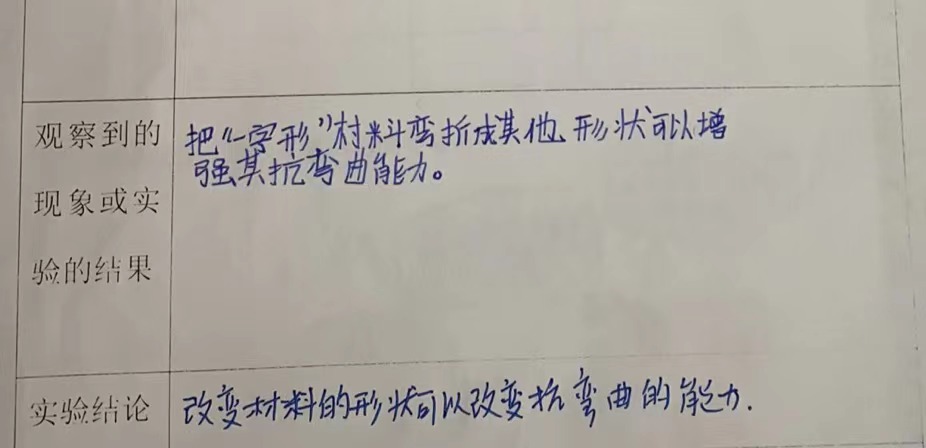 观察到的
现象或实
验的结果
把“一字形”材料弯折成其他形状可以增
强其抗弯曲能力。
实验结论
改变材料的形状可以改变抗弯曲的能力.